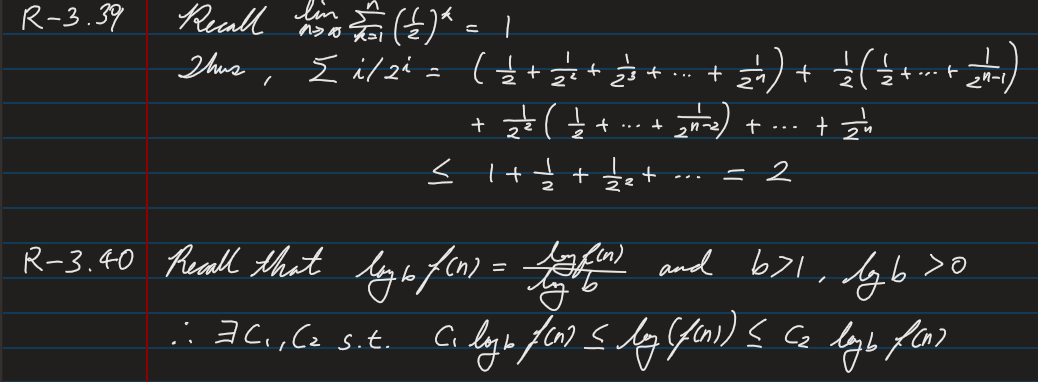 R-3.39 Recall lim n→∞ n Σ k=1 (1/2)^k = 1
Thus, Σ i/2^i = (1/2 + 1/2^2 + 1/2^3 + ... + 1/2^n) + 1/2(1/2 + ... + 1/2^(n-1))
+ 1/2^2 (1/2 + ... + 1/2^(n-2)) + ... + 1/2^n
≤ 1 + 1/2 + 1/2^2 + ... = 2
R-3.40 Recall that log_b f(n) = log f(n) / log b and b>1, log b >0
∴ ∃ C1, C2 s.t. C1 log_b f(n) ≤ log(f(n)) ≤ C2 log_b f(n)